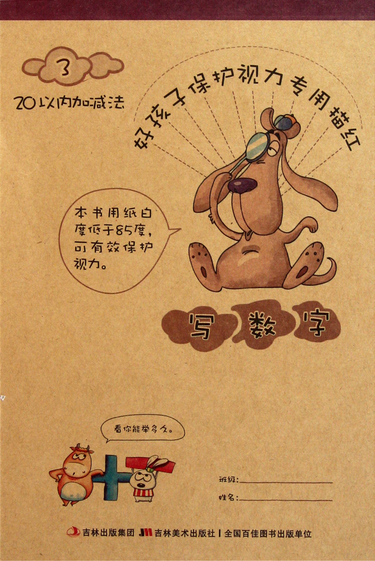 3
20以内加减法
好孩子保护视力专用描红
本书用纸白
度低于85度，
可有效保护
视力。
写数字
看你能举多久。
班级:
姓名:
吉林出版集团 JM 吉林美术出版社 | 全国百佳图书出版单位